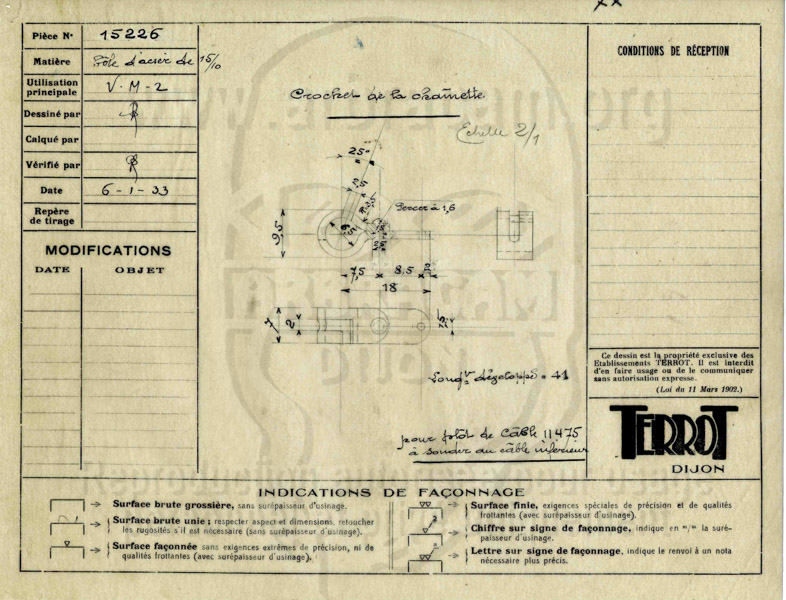 Pièce N° 15226
Matière Tôle d'acier de 15/10
Utilisation principale V·M-2
Dessiné par
Calqué par
Vérifié par
Date 6-1-33
Repère de tirage
MODIFICATIONS
DATE OBJET
Crochet de la chaînette
Echelle 2/1
25°
2,5
Percer à 1,6
9,5
6,5
7,5 8,5
18
7 2
Longr développée = 41
pour plot de câble 11475
à souder au câble inférieur
CONDITIONS DE RÉCEPTION
Ce dessin est la propriété exclusive des
Etablissements TERROT. Il est interdit
d'en faire usage ou de le communiquer
sans autorisation expresse.
(Loi du 11 Mars 1902.)
TERROT
DIJON
INDICATIONS DE FAÇONNAGE
Surface brute grossière, sans surépaisseur d'usinage.
Surface brute unie ; respecter aspect et dimensions, retoucher
les rugosités s'il est nécessaire (sans surépaisseur d'usinage).
Surface façonnée sans exigences extrêmes de précision, ni de
qualités frottantes (avec surépaisseur d'usinage).
Surface finie, exigences spéciales de précision et de qualités
frottantes (avec surépaisseur d'usinage).
Chiffre sur signe de façonnage, indique en m/m la suré-
paisseur d'usinage.
Lettre sur signe de façonnage, indique le renvoi à un nota
nécessaire plus précis.